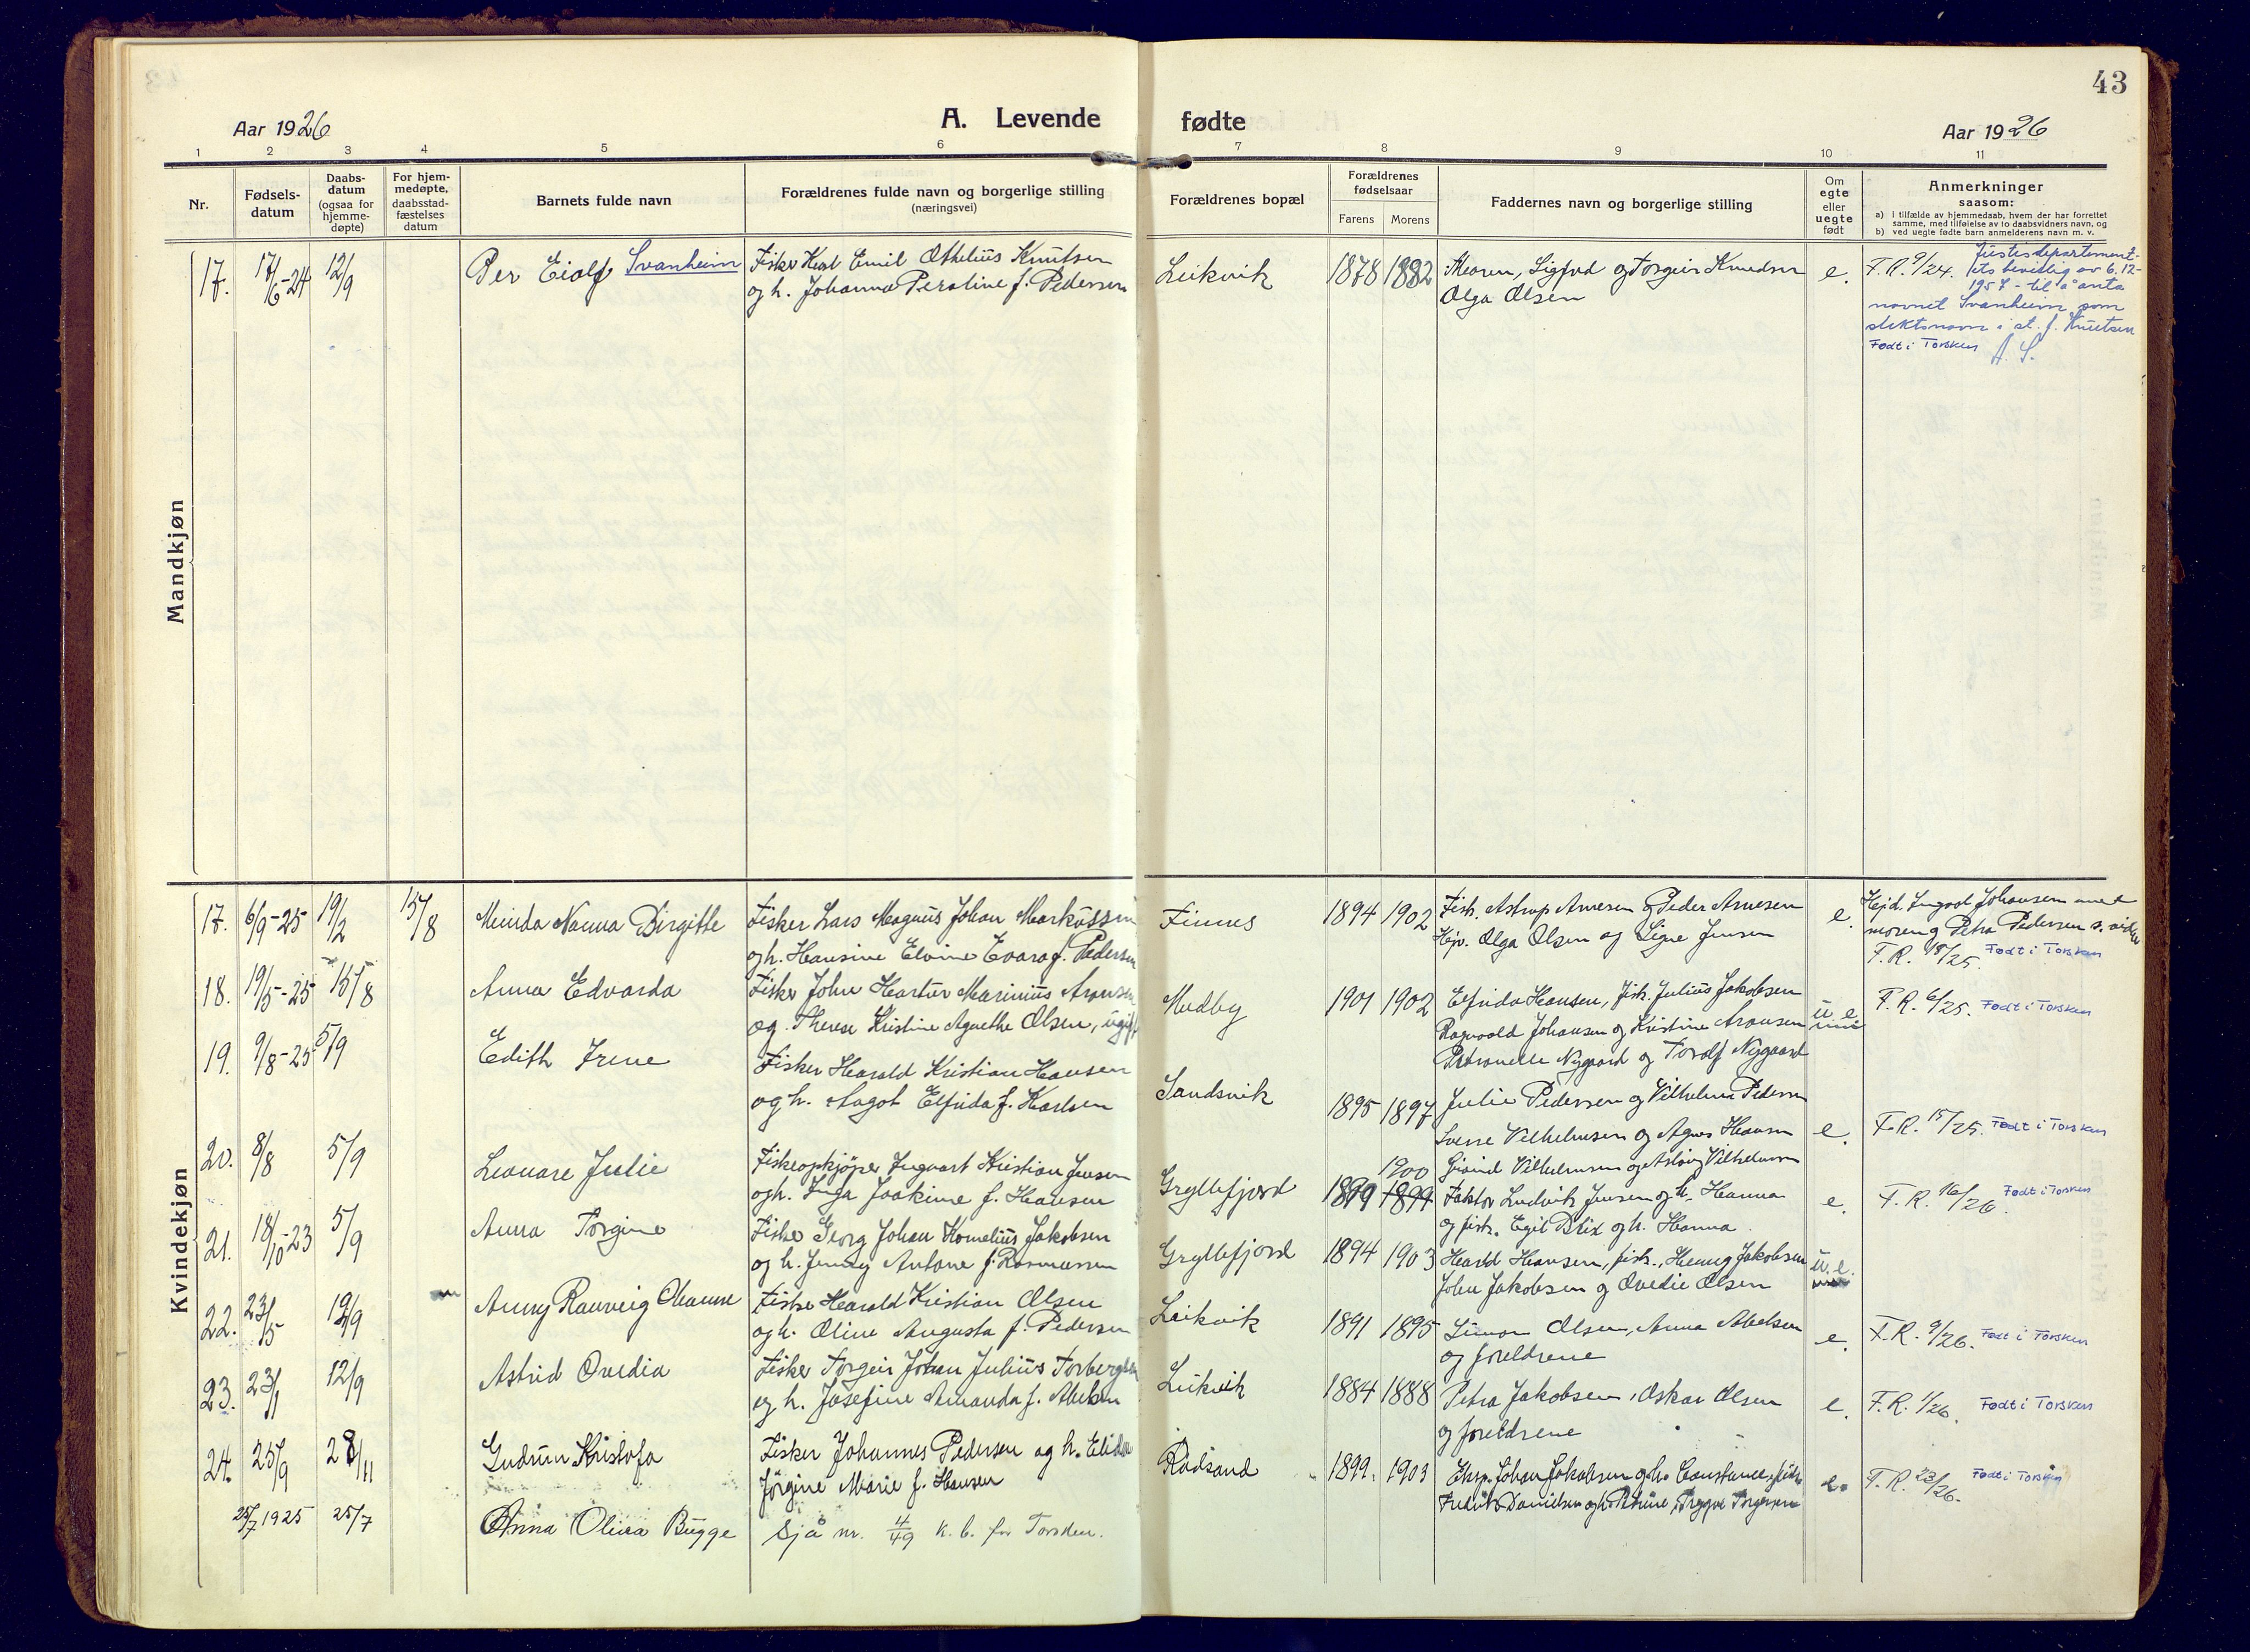 43
Aar 1926
A. Levende fødte
Aar 1926
1 2 3 4 5 6 7 8 9 10 11
Nr.
Fødsels-
datum
Daabs-
datum
(ogsaa for
hjemme-
døpte)
For hjem-
medøpte,
daabsstad-
fæstelses
datum
Barnets fulde navn
Forældrenes fulde navn og borgerlige stilling
(næringsvei)
Forældrenes bopæl
Forældrenes
fødselsaar
Farens Morens
Faddernes navn og borgerlige stilling
Om
egte
eller
uegte
født
Anmerkninger
saasom:
a) i tilfælde av hjemmedaab, hvem der har forrettet
samme, med tilføielse av to daabsvidners navn, og
b) ved uegte fødte barn anmelderens navn m. v.
Mandkjøn
17. 17/6-24 12/9 Per Eiolf Svanheim
Fisker Karl Emil Othelius Knutsen
og h. Johanna Peroline f. Pedersen
Leikvik 1878 1882
Maren, Sigfrd og Torgeir Knudsen
Olga Olsen
e. F.R. 9/24.
Justisdepartement-
ets bevillig av 6.12-
1957 - til å anta
navnet Svanheim som
slektsnavn i st. f. Knutsen
Født i Torsken A. S.
Kvindekjøn
17. 6/9-25 19/2 15/8 Minda Nanna Birgitte
Fisker Lars Magnus Johan Markussen
og h. Hansine Elvine Evara f. Pedersen
Finnes 1894 1902
Fisk. Astrup Arnesen og Peder Arnesen
Hjv. Olga Olsen og Signe Jensen
e. Hjd. Ingvod Johansen med
moren og Petra Pedersen s. vidner
F.R. 18/25. Født i Torsken
18. 19/5-25 15/8 Anna Edvarda
Fisker John Hartur Marinius Aronsen
og Therese Kristine Agnethe Olsen, ugift
Medby 1901 1902
Elfrida Hansen, fisk. Julius Jakobsen
Ragnvald Johansen og Kristine Aronsen
Petronelle Nygaard og Torolf Nygaard
u.e. F.R. 6/25. Født i Torsken
19. 9/8-25 5/9 Edith Irene
Fisker Harald Kristian Hansen
og h. Aagot Elfrida f. Karlsen
Sandsvik 1895 1897
Julie Pedersen og Vilhelm Pedersen
Sverre Vilhelmsen og Agnes Hansen
Eivind Vilhelmsen og Aslaug Vilhelmsen
e. F.R. 15/25. Født i Torsken
20. 8/8 5/9 Leonare Julie
Fiskeopkjøper Ingvart Kristian Jensen
og h. Inga Joakime f. Hansen
Gryllefjord 1899 1899 1900
Faktor Ludvik Jensen og h. Hanna
og fisk. Egil Blix og h. Hanna.
e. F.R. 16/26. Født i Torsken
21. 18/10-23 5/9 Anna Torgine
Fisker Georg Johan Kornelius Jakobsen
og h. Jenny Antone f. Rasmussen
Gryllefjord 1894 1903
Harald Hansen, fisk., Henny Jakobsen
John Jakobsen og Ovedie Olsen
u.e.
22. 23/15 12/9 Anny Rannveig Ohanne
Fisker Harald Kristian Olsen
og h. Oline Augusta f. Pedersen
Leikvik 1891 1895
Simon Olsen, Anna Abelsen
og foreldrene
e. F.R. 9/26. Født i Torsken
23. 23/1 12/9 Astrid Ovedia
Fisker Torgeir Johan Julius Torbergsen
og h. Josefine Amanda f. Abelsen
Leikvik 1884 1888
Petra Jakobsen, Oskar Olsen
og foreldrene
e. F.R. 1/26. Født i Torsken
24. 25/9 28/11 Gudrun Kristofa
Fisker Johannes Pedersen og h. Elida
Jörgine Marie f. Hansen
Rödsand 1899. 1903
Eksp. Johan Jakobsen og h. Constance, fisk.
Fredrik Danielsen og h. Petrine, Trygve Torgersen
e. F.R. 23/26. Født i Torsken
25/7 1925 25/7 Anna Olivia Bugge
Sjå nr. 4/49 k. b. for Torsken.